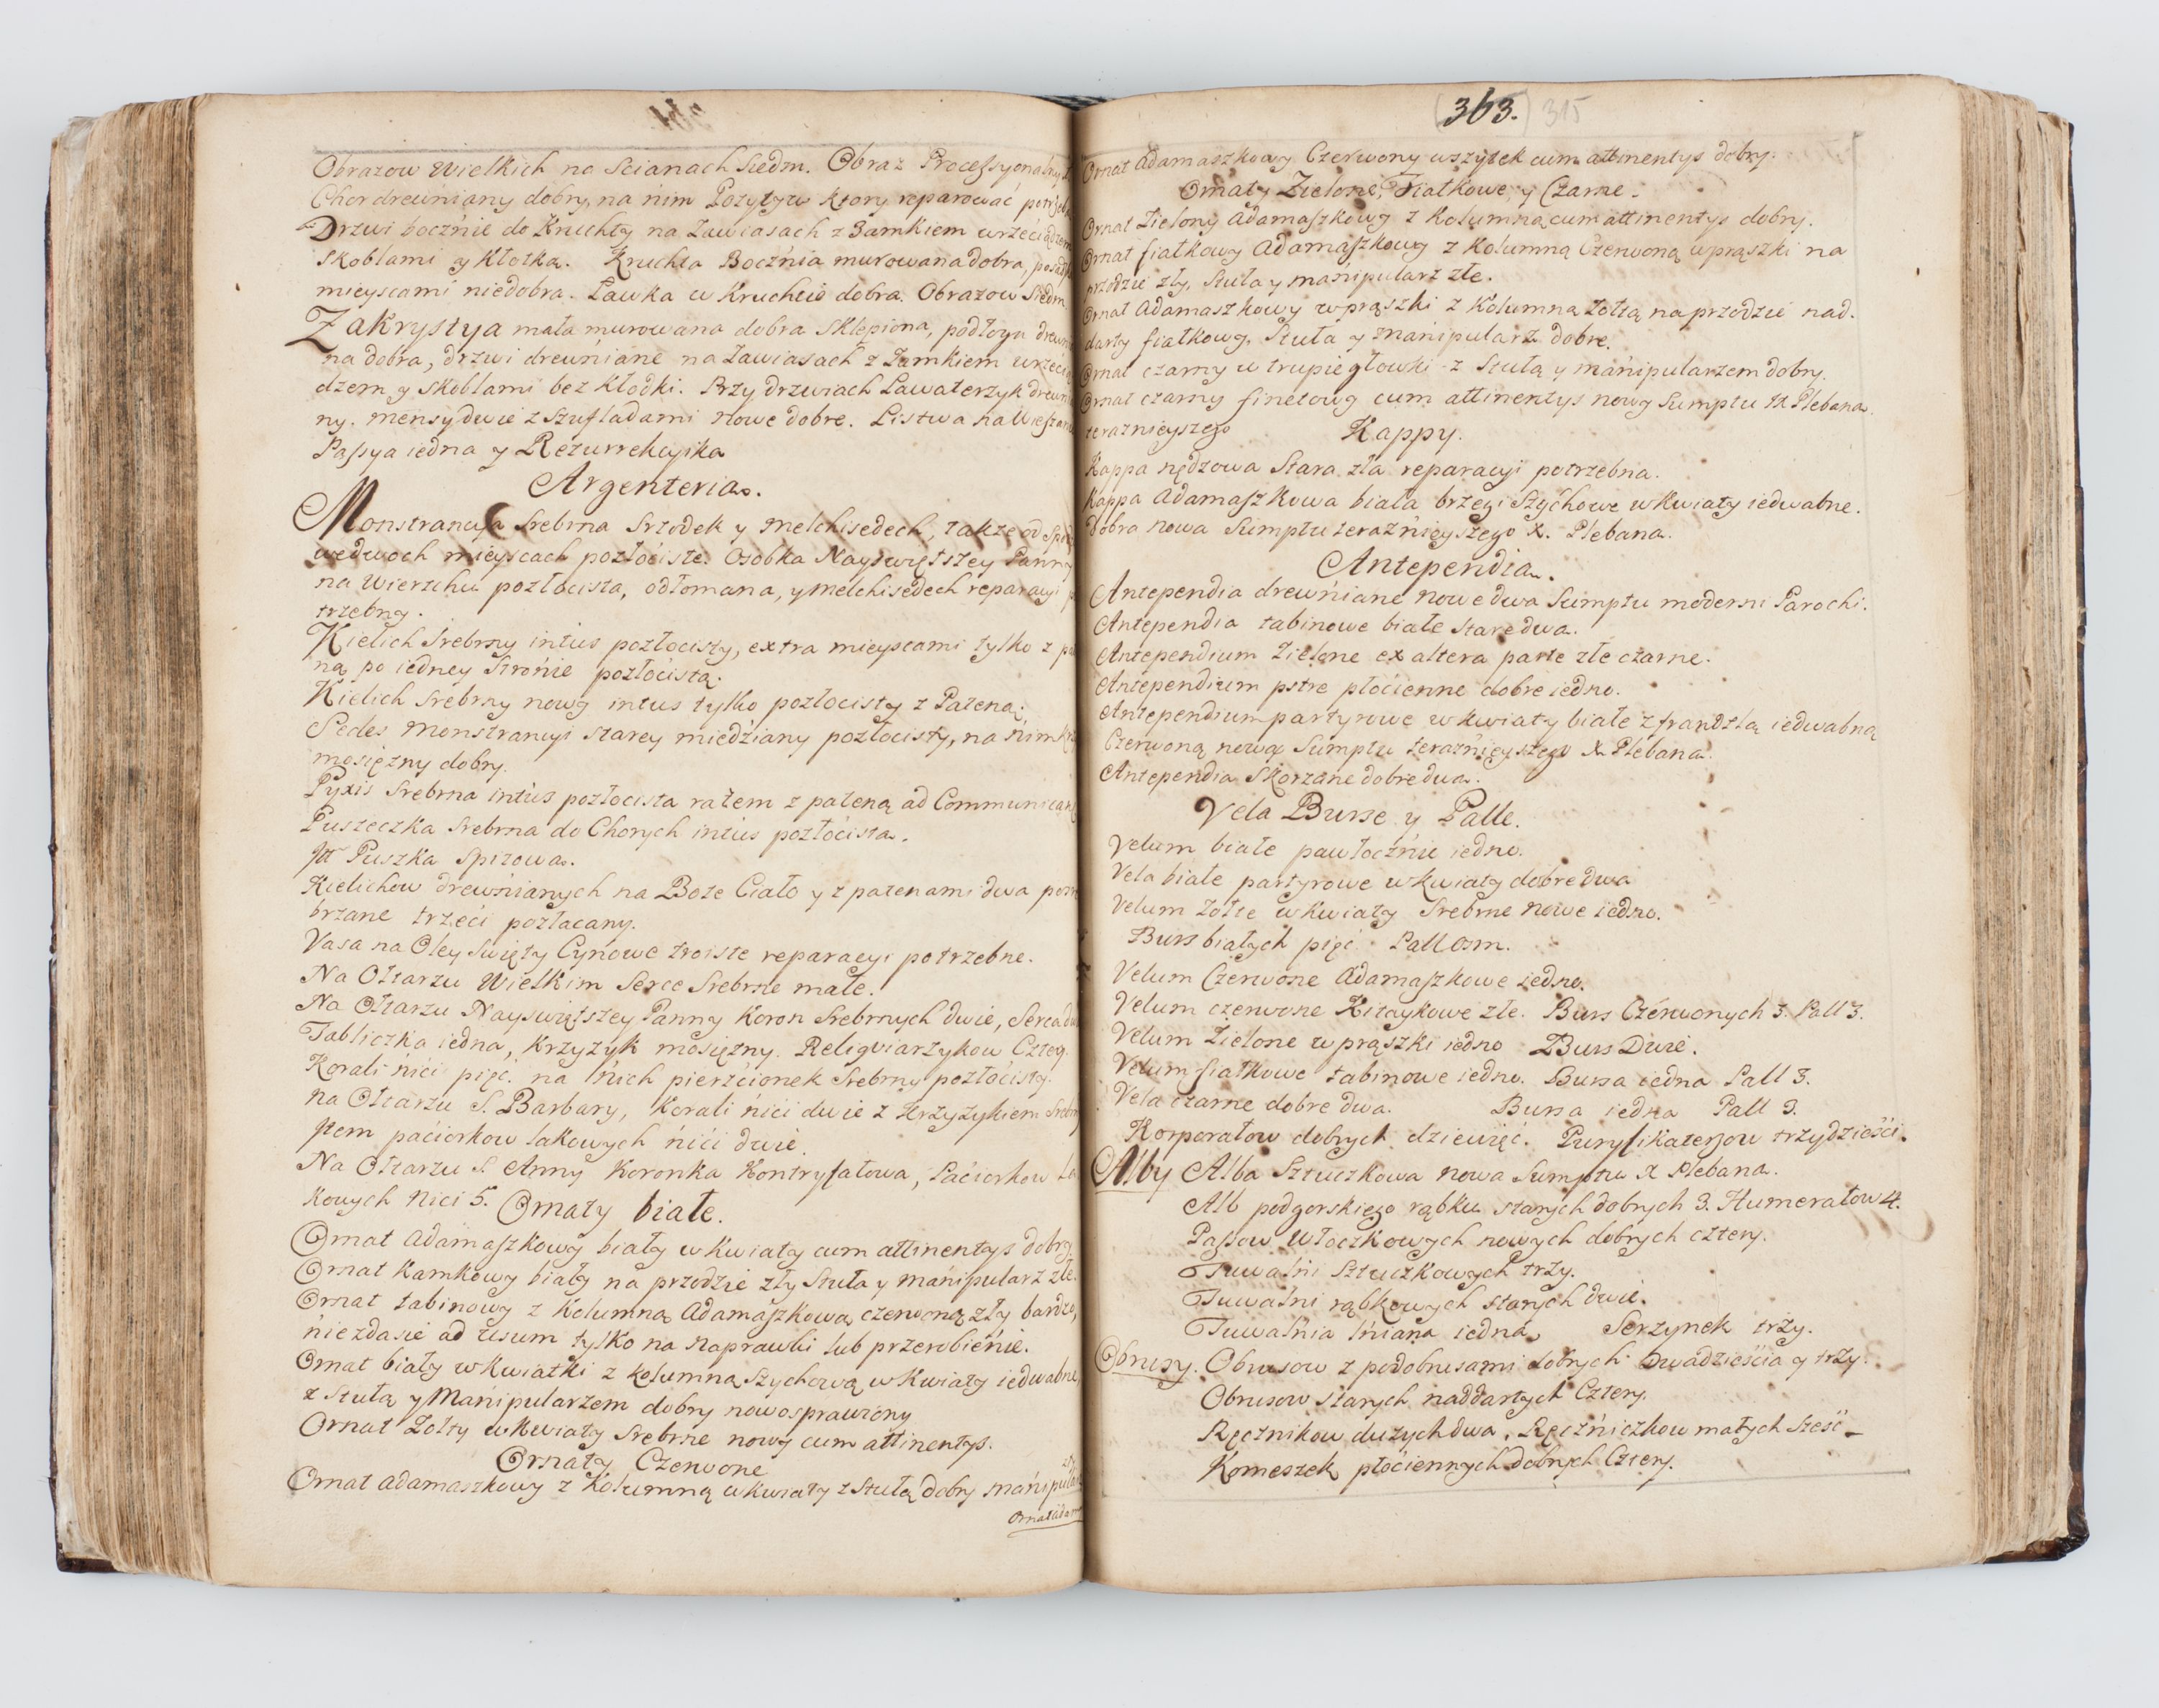 Obrazow Wielkich na Scianach Siedm. Obraz Processyonalny
Chor drewniany dobry, na nim Pozytyw ktory reparować
Drzwi bocznie do Kruchty na Zawiasach z Zamkiem wrzeciądzem
Skoblami y Kłotką. Kruchta Bocznia murowana dobra,
mieyscami niedobra. Lawka w Kruchcie dobra. Obrazow Siedm
Zakrystya mała murowana dobra Sklepiona, podłoga
na dobra, drzwi drewniane na Zawiasach z Zamkiem wrzecią
dzem y Skoblami bez Kłodki. Przy drzwiach Lawaterzyk drewnia
ny. Mensy dwie z Szufladami nowe dobre. Listwa na
Passya iedna y Rezurrekcyika
Argenteria.
Monstrancya Srebrna Srzodek y Melchisedech, także od
wedwoch mieyscach pozłociste. Osobka Nayswiętszey Panny
na Wierzchu pozłocista, odłomana, y Melchisedech reparacyi
trzebny.
Kielich Srebrny intus pozłocisty, extra mieyscami tylko z
ną po iedney Stronie pozłocistą.
Kielich Srebrny nowy intus tylko pozłocisty z Pateną.
Pedes Monstrancyi starey miedziany pozłocisty, na nim
mosiężny dobry.
Pyxis Srebrna intus pozłocista razem z pateną ad
Puszeczka Srebrna do Chorych intus pozłocista.
Itt Puszka Spizowa.
Kielichow drewnianych na Boze Ciało y z patenami dwa
brzane trzeci pozłacany.
Vasa na Oley Swięty Cynowe troiste reparacyi potrzebne.
Na Ołtarzu Wielkim Serce Srebrne małe.
Na Ołtarzu Nayswiętszey Panny Koron Srebrnych dwie, Serca
Tabliczka iedna, Krzyzyk mosięzny. Religwiarzykow
Korali nici pięc. na nich pierzcionek Srebrny pozłocisty.
Na Ołtarzu S. Barbary, Korali nici dwie z Krzyzykiem
Item paciorkow lakowych nici dwie.
Na Ołtarzu S. Anny Koronka Kontryfałowa, Paciorkow La
kowych Nici 5. Ornaty białe.
Ornat Adamaszkowy biały w Kwiaty cum attinentys dobry.
Ornat Kamkowy biały na przodzie zły Stuła y manipularz złe.
Ornat tabinowy z Kolumną Adamaszkową czerwoną zły bardzo,
nie zda sie ad usum tylko na naprawki lub przerobienie.
Ornat biały w Kwiatki z Kolumną Szychową w Kwiaty iedwabne,
z Stułą y Manipularzem dobry nowo sprawiony
Ornat Zołty w Kwiaty Srebrne nowy cum attinentys.
Ornaty Czerwone
Ornat adamaszkowy z Kolumną w kwiaty z Stułą dobry
363. 315
Ornat Adamaszkowy Czerwony wszytek cum attinentys dobry.
Ornaty Zielone, Fiałkowe, y Czarne.
Ornat Zielony Adamaszkowy z Kolumną cum attinentys dobry.
Ornat fiałkowy Adamaszkowy z Kolumną Czerwoną w prąszki na
przodzie zły, Stuła y manipularz złe.
Ornat Adamaszkowy w prąszki z Kolumną żołtą na przodzie nad.
darty fiałkowy, Stuła y manipularz dobre.
Ornat czarny w trupie głowki z Stułą y manipularzem dobry.
Ornat czarny finetowy cum attinentys nowy Sumptu X Plebana.
teraznieyszego Kappy.
Kappa nędzowa Stara zła reparacyi potrzebna.
Kappa Adamaszkowa biała brzegi Szychowe w Kwiaty iedwabne.
dobra nowa Sumptu teraznieyszego X. Plebana.
Antependia.
Antependia drewniane nowe dwa Sumptu moderni Parochi.
Antependia tabinowe białe stare dwa.
Antependium Zielone ex altera parte złe czarne.
Antependium pstre płocienne dobre iedno.
Antependium partyrowe w kwiaty białe z frandzlą iedwabną
Czerwoną nową Sumptu teraznieyszego X. Plebana.
Antependia Skorzane dobre dwa.
Vela Burse y Palle.
Velum białe pawłocznie iedno.
Vela białe partyrowe w kwiaty dobre dwa
Velum zołte w Kwiaty Srebrne nowe iedno.
Burs białych pięć. Pall osm.
Velum Czerwone Adamaszkowe iedno.
Velum czerwone Kitaykowe złe. Burs Czerwonych 3. Pall 3.
Velum Zielone w prąszki iedno Burs Dwie.
Velum fiałkowe tabinowe iedno. Bursa iedna Pall 3.
Vela czarne dobre dwa. Bursa iedna Pall 3.
Korporałow dobrych dziewięć. Puryfikaterzow trzydzieści.
Alby Alba Sztuczkowa nowa Sumptu X Plebana.
Alb podgorskiego rąbku starych dobrych 3. Humerałow 4.
Passow Włoczkowych nowych dobrych cztery.
Tuwalni Sztuczkowych trzy.
Tuwalni rąbkowych starych dwie.
Tuwalnia lniana iedna, Serzynek trzy.
Obrusy. Obrusow z podobrusami dobrych dwadzieścia y trzy.
Obrusow starych naddartych Cztery.
Ręcznikow duzych dwa. Ręczniczkow małych Szesć
Komeszek płociennych dobrych Cztery.